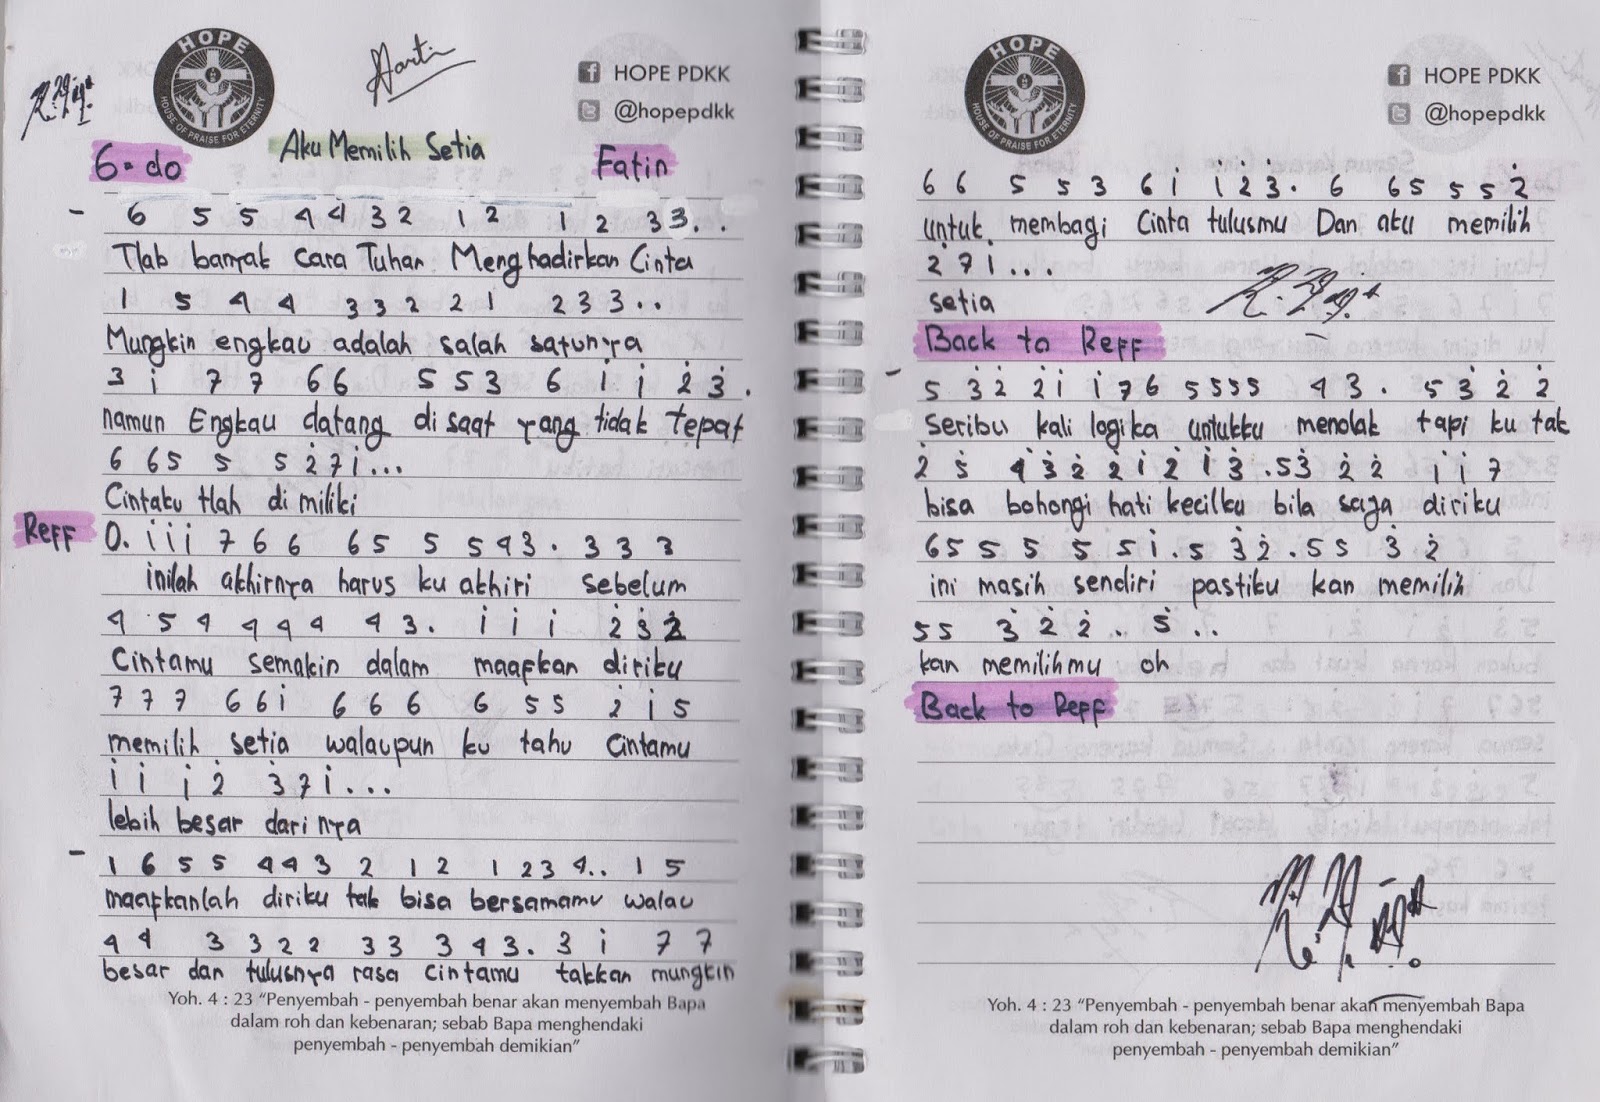 HOPE
HOUSE OF PRAISE FOR ETERNITY
HOPE PDKK
@hopepdkk
6=do
Aku Memilih Setia
Fatin
- 6 5 5 4 4 3 2 1 2 1 2 3 3 . .
Tlah banyak cara Tuhan Menghadirkan Cinta
1 5 4 4 3 3 2 2 1 2 3 3 . .
Mungkin engkau adalah salah satunya
3 i 7 7 6 6 5 5 3 6 i i 2̇ 3̇ .
namun Engkau datang di saat yang tidak tepat
6 6 5 5 5 2̇ 7 i . . .
Cintaku tlah di miliki
Reff 0. i i i 7 6 6 6 5 5 5 4 3 . 3 3 3
inilah akhirnya harus ku akhiri sebelum
4 5 4 4 4 4 4 3 . i i i 2̇ 3̇ 2̇
Cintamu semakin dalam maafkan diriku
7 7 7 6 6 i 6 6 6 6 5 5 2̇ i 5
memilih setia walaupun ku tahu Cintamu
i i i 2̇ 3̇ 7 i . . .
lebih besar darinya
- 1 6 5 5 4 4 3 2 1 2 1 2 3 4 . . 1 5
maafkanlah diriku tak bisa bersamamu walau
4 4 3 3 2 2 3 3 3 4 3 . 3 i 7 7
besar dan tulusnya rasa cintamu takkan mungkin
Yoh. 4 : 23 “Penyembah - penyembah benar akan menyembah Bapa
dalam roh dan kebenaran; sebab Bapa menghendaki
penyembah - penyembah demikian”
HOPE
HOUSE OF PRAISE FOR ETERNITY
HOPE PDKK
@hopepdkk
6 6 5 5 3 6 i i 2̇ 3̇ . 6 6 5 5 5 2̇
untuk membagi Cinta tulusmu Dan aku memilih
2 7 1 . . .
setia
Back to Reff
- 5 3̇ 2̇ 2̇ i i 7 6 5 5 5 5 4 3 . 5 3̇ 2̇ 2̇
Seribu kali logika untukku menolak tapi ku tak
2̇ 5̇ 4̇ 3̇ 2̇ 2̇ i 2̇ i 3̇ . 5 3̇ 2̇ 2̇ i i 7
bisa bohongi hati kecilku bila saja diriku
6 5 5 5 5 5 i . 5 3̇ 2̇ . 5 5 3̇ 2̇
ini masih sendiri pastiku kan memilih
5 5 3̇ 2̇ 2̇ . 5̇ . .
kan memilihmu oh
Back to Reff
Yoh. 4 : 23 “Penyembah - penyembah benar akan menyembah Bapa
dalam roh dan kebenaran; sebab Bapa menghendaki
penyembah - penyembah demikian”